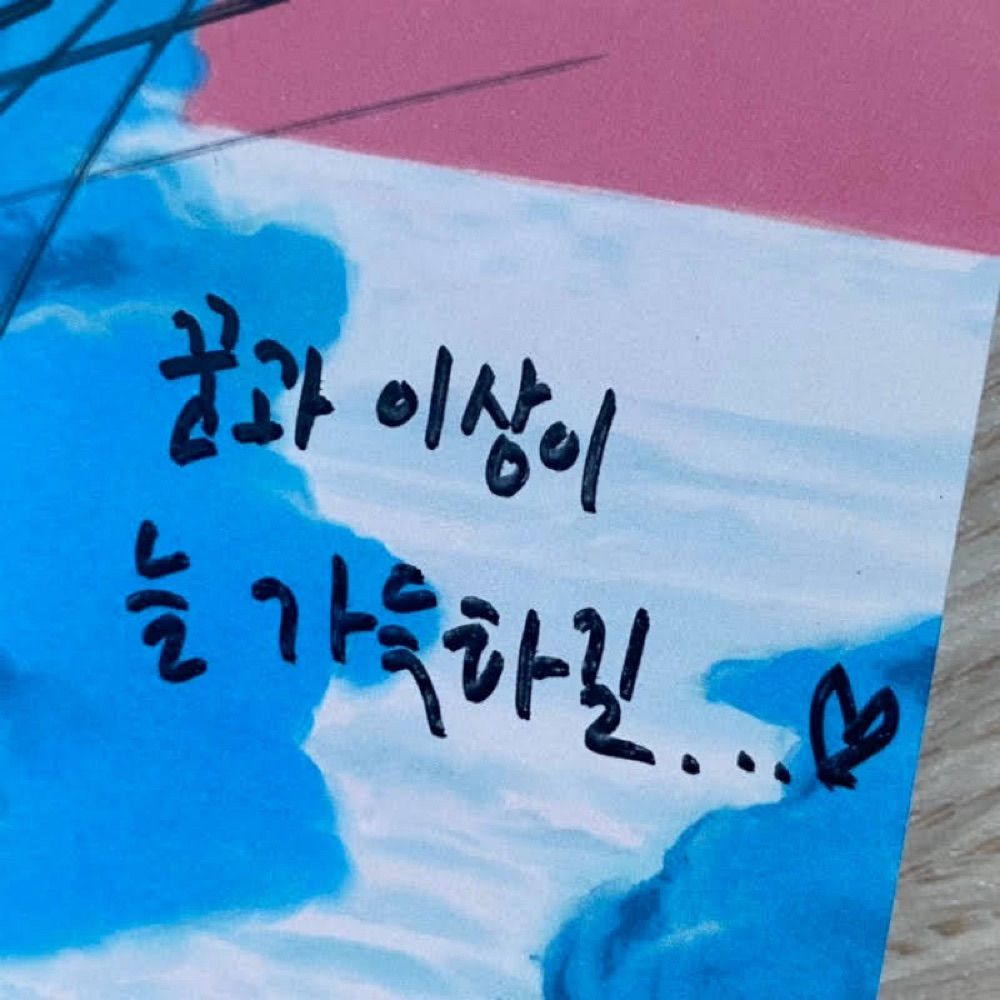 꿈과 이상이
늘 가득하길...♡